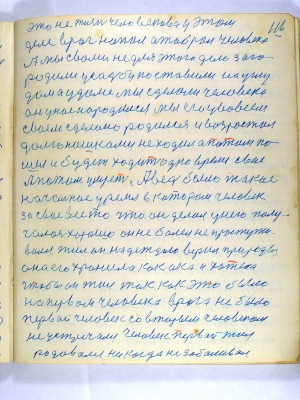 116
это не тип человека у этом
деле враг напал а тобрал человека
А мы своли не для этого дело заго
родили усадбу поставили на углу
дом а у доме мы сделали человека
он у нас народился мы его увовсем
своем сделано родился и возростал
долго ношками не ходил а потом по
шел и будет ходить одно время свое
А потом умрет. А вед было такое
начальное уремя в котором человек
за свое место что он делал у него полу
чалося хорошо он не болел не простужи
вался жил он надеждою верил природы
она его хранила как ока и хотела
чтобы он жил так как это было
на первом человека врага не было
первай человек со вторым человеком
не устричали Человек первай жил
родовался никогда не заболивал